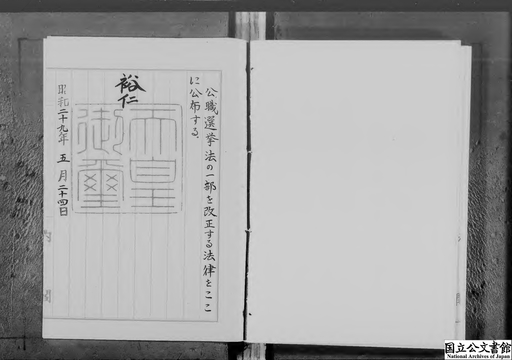 公職選挙法の一部を改正する法律をここ
に公布する。
裕仁
天皇
御璽
昭和二十九年五月二十四日
内閣
国立公文書館
National Archives of Japan